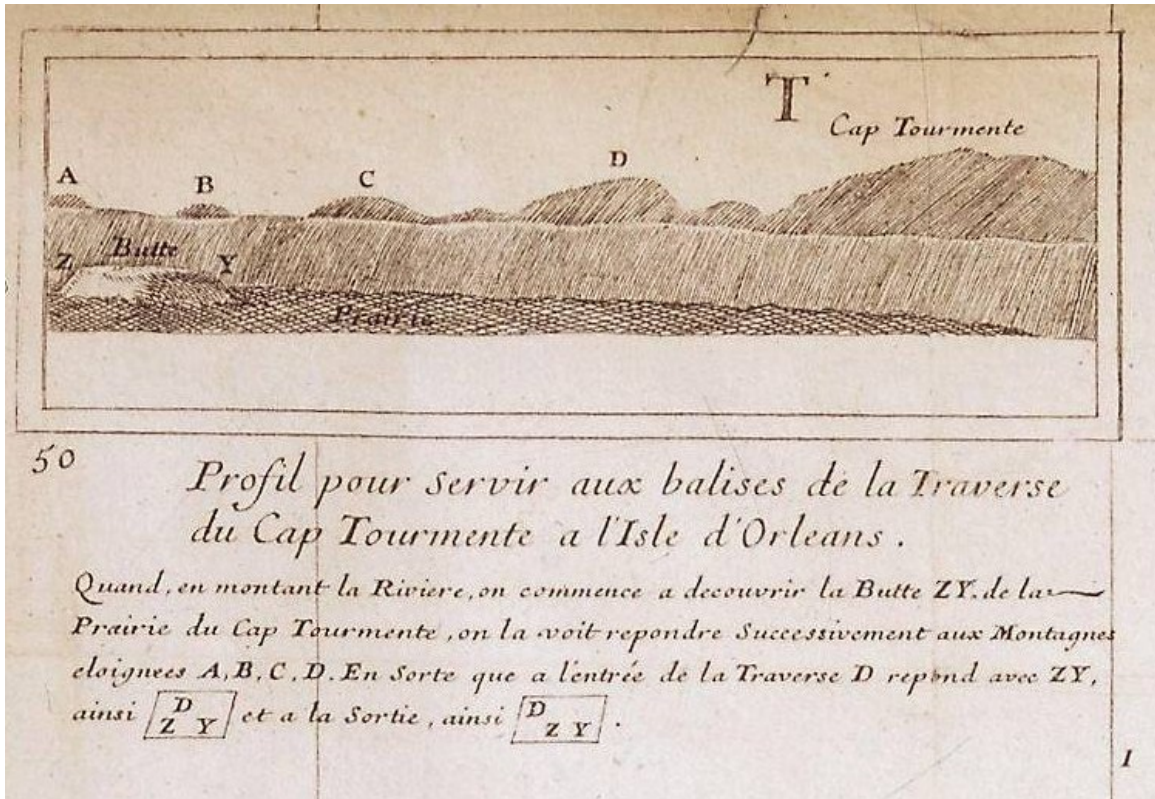 T
Cap Tourmente
A B C D
Z Butte Y
Prairie
50
Profil pour servir aux balises de la Traverse
du Cap Tourmente a l'Isle d'Orleans.
Quand, en montant la Riviere, on commence a decouvrir la Butte ZY. de la
Prairie du Cap Tourmente, on la voit repondre Successivement aux Montagnes
eloignees A, B, C, D. En Sorte que a l'entrée de la Traverse D repond avec ZY,
ainsi D Z Y et a la Sortie, ainsi D Z Y.
I